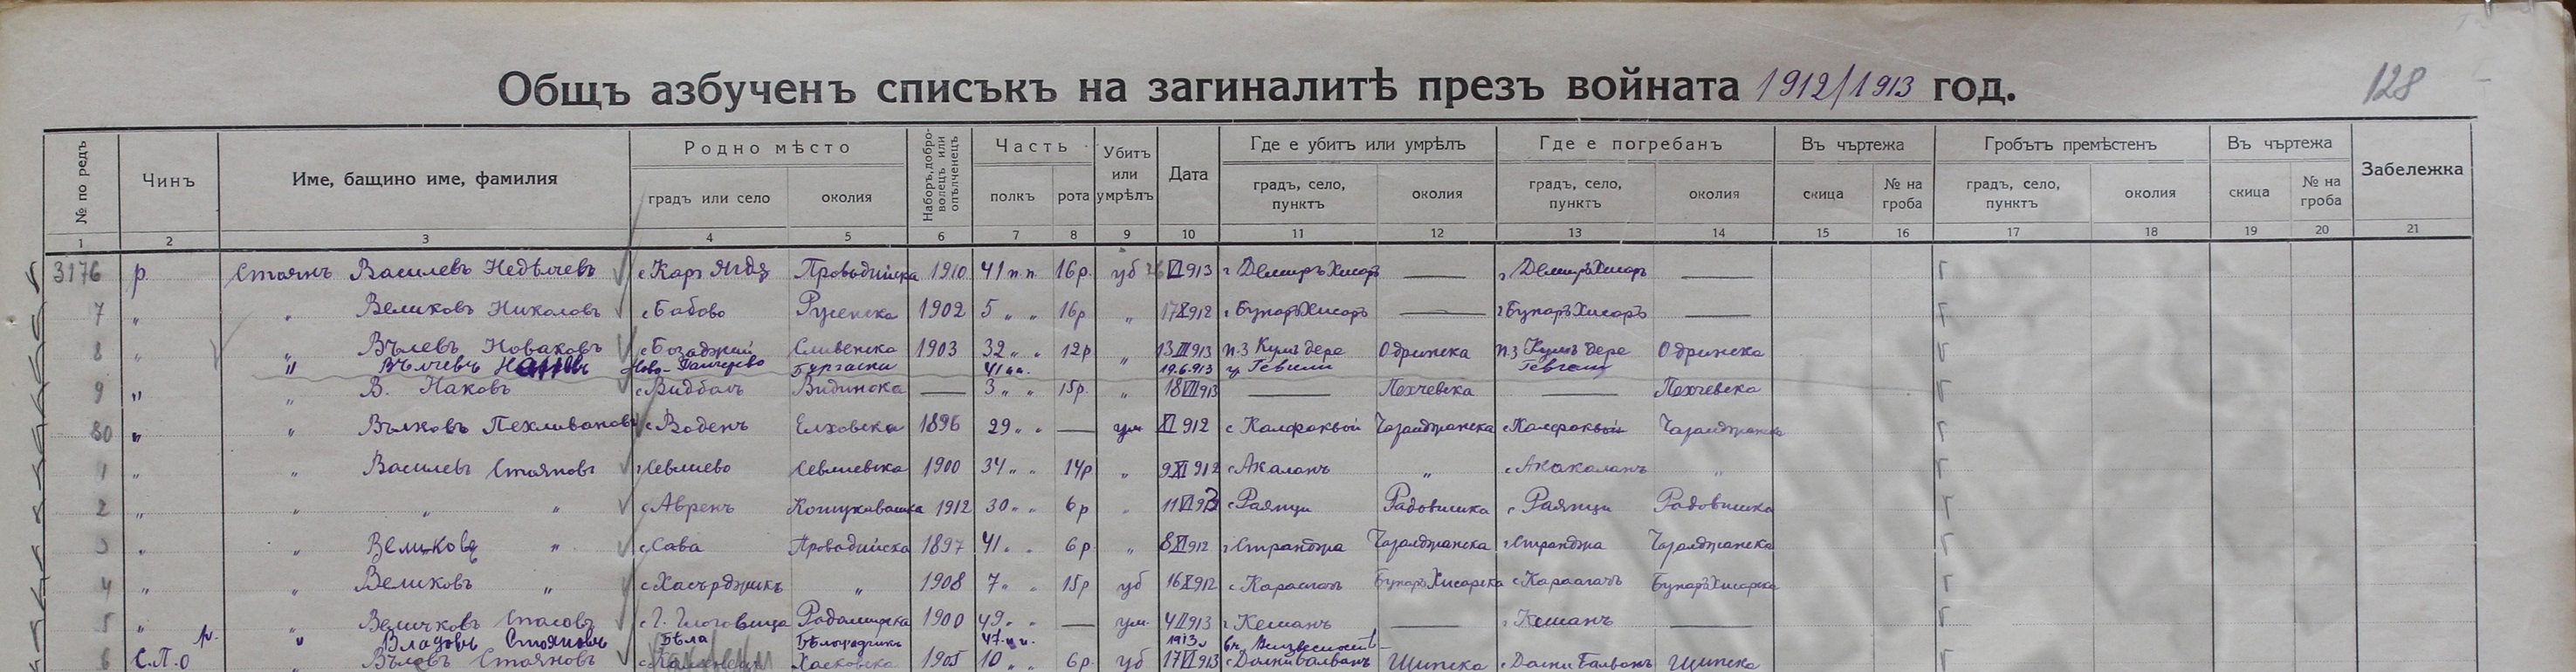 128
Общъ азбученъ списъкъ на загиналитѣ презъ войната 1912/1913 год.
№ по редъ Чинъ Име, бащино име, фамилия Родно мѣсто Наборъ, добро-волецъ или опълченецъ Часть Убитъ или умрѣлъ Дата Где е убитъ или умрѣлъ Где е погребанъ Въ чъртежа Гробътъ премѣстенъ Въ чъртежа Забележка
градъ или село околия полкъ рота градъ, село, пунктъ околия градъ, село, пунктъ околия скица № на гроба градъ, село, пунктъ околия скица № на гроба
1 2 3 4 5 6 7 8 9 10 11 12 13 14 15 16 17 18 19 20 21
3176 р. Стоянъ Василевъ Недѣлчевъ Провадийска 1910 41 п.п. 16р. уб 26 VI 913 г Демиръ Хисаръ — г Демиръ Хисаръ —
7 " " Великовъ Николовъ с Бабово Русенска 1902 5 " " 16р " 17 X 912 г Бунаръ Хисаръ — г Бунаръ Хисаръ —
8 " " Вълевъ Новаковъ с Бозаджий Сливенска 1903 32 " " 12р " 13 III 913 п.з Кумъ дере Одринска п.з Кумъ дере Одринска
" Вълчевъ Ново-Паничарево Бургаски 41 п.п. 19.6.913 Гевгели Гевгели
9 " " В. Наковъ с Видболъ Видинска — 3 " " 15р. " 18 VII 913 — Пехчевска — Пехчевска
80 " " Вълковъ Пехливановъ с Воденъ Елховска 1896 29 " " — ум XI 912 с Калфакьой Чаталджанска с Калфакьой Чаталджанска
1 " " Василевъ Стояновъ г Севлиево Севлиевска 1900 34 " " 14р " 9 XI 912 с Акаланъ " с Акакаланъ "
2 " " " " с Авренъ Кошукавашка 1912 30 " " 6р " 11 VI 913 с Раянци Радовишка с Раянци Радовишка
3 " " Великовъ " с Сава Провадийска 1897 41 " " 6р " 8 XI 912 г Странджа Чаталджанска г Странджа Чаталджанска
4 " " Великовъ " с Хасърджикъ " 1908 7 " " 15р уб 16 X 912 с Караагачъ Бунаръ Хисарска с Караагачъ Бунаръ Хисарска
5 " " Величковъ Спасовъ с Г. Глоговица Радомирска 1900 49 " " — ум. 4 II 913 г Кешанъ — г Кешанъ —
р. " Владовъ Стояновъ Бѣла Бѣлоградчикъ 47 п.п. 1913 въ Неизвестность
6 С.П.О " Вълевъ Стояновъ Хасковска 1905 10 " " 6р уб 17 VI 913 с Долни Балванъ Щипска с Долни Балванъ Щипска